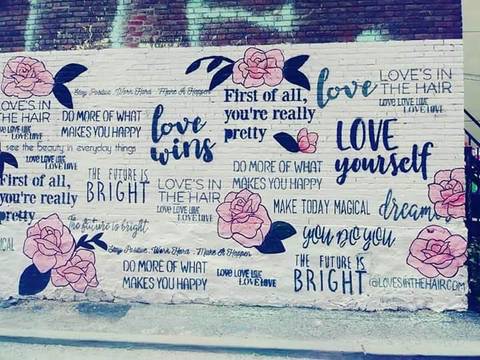 Stay Positive . Work Hard . Make It Happen
LOVE'S IN
THE HAIR
LOVE LOVE LOVE
LOVE LOVE
DO MORE OF WHAT
MAKES YOU HAPPY
love
wins
First of all,
you're really
pretty
love
LOVE'S IN
THE HAIR
LOVE LOVE LOVE
LOVE LOVE
see the beauty in everyday things
First of all,
you're really
pretty
THE FUTURE IS
BRIGHT
LOVE'S IN
THE HAIR
LOVE LOVE LOVE
LOVE LOVE
DO MORE OF WHAT
MAKES YOU HAPPY
LOVE
yourself
The future is bright
MAKE TODAY MAGICAL
dream
YOU DO YOU
Stay Positive . Work Hard . Make It Happen
DO MORE OF WHAT
MAKES YOU HAPPY
LOVE LOVE LOVE
LOVE LOVE
THE FUTURE IS
BRIGHT
@LOVESINTHEHAIR.COM